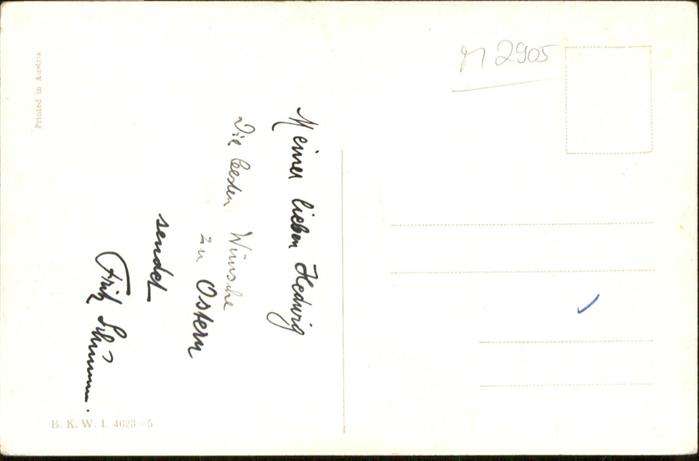 Meiner lieben Hedwig
Die besten Wünsche
zu Ostern
sendet
Fritz
M 2905
Printed in Austria
B. K. W. I. 4623-5